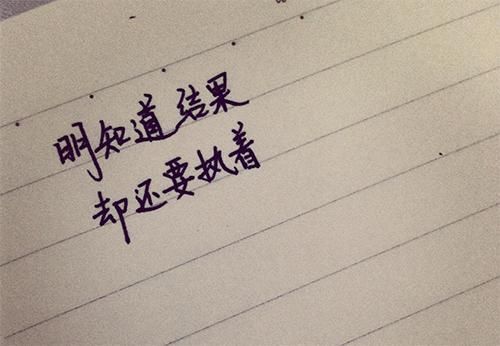 明知道结果
却还要执着